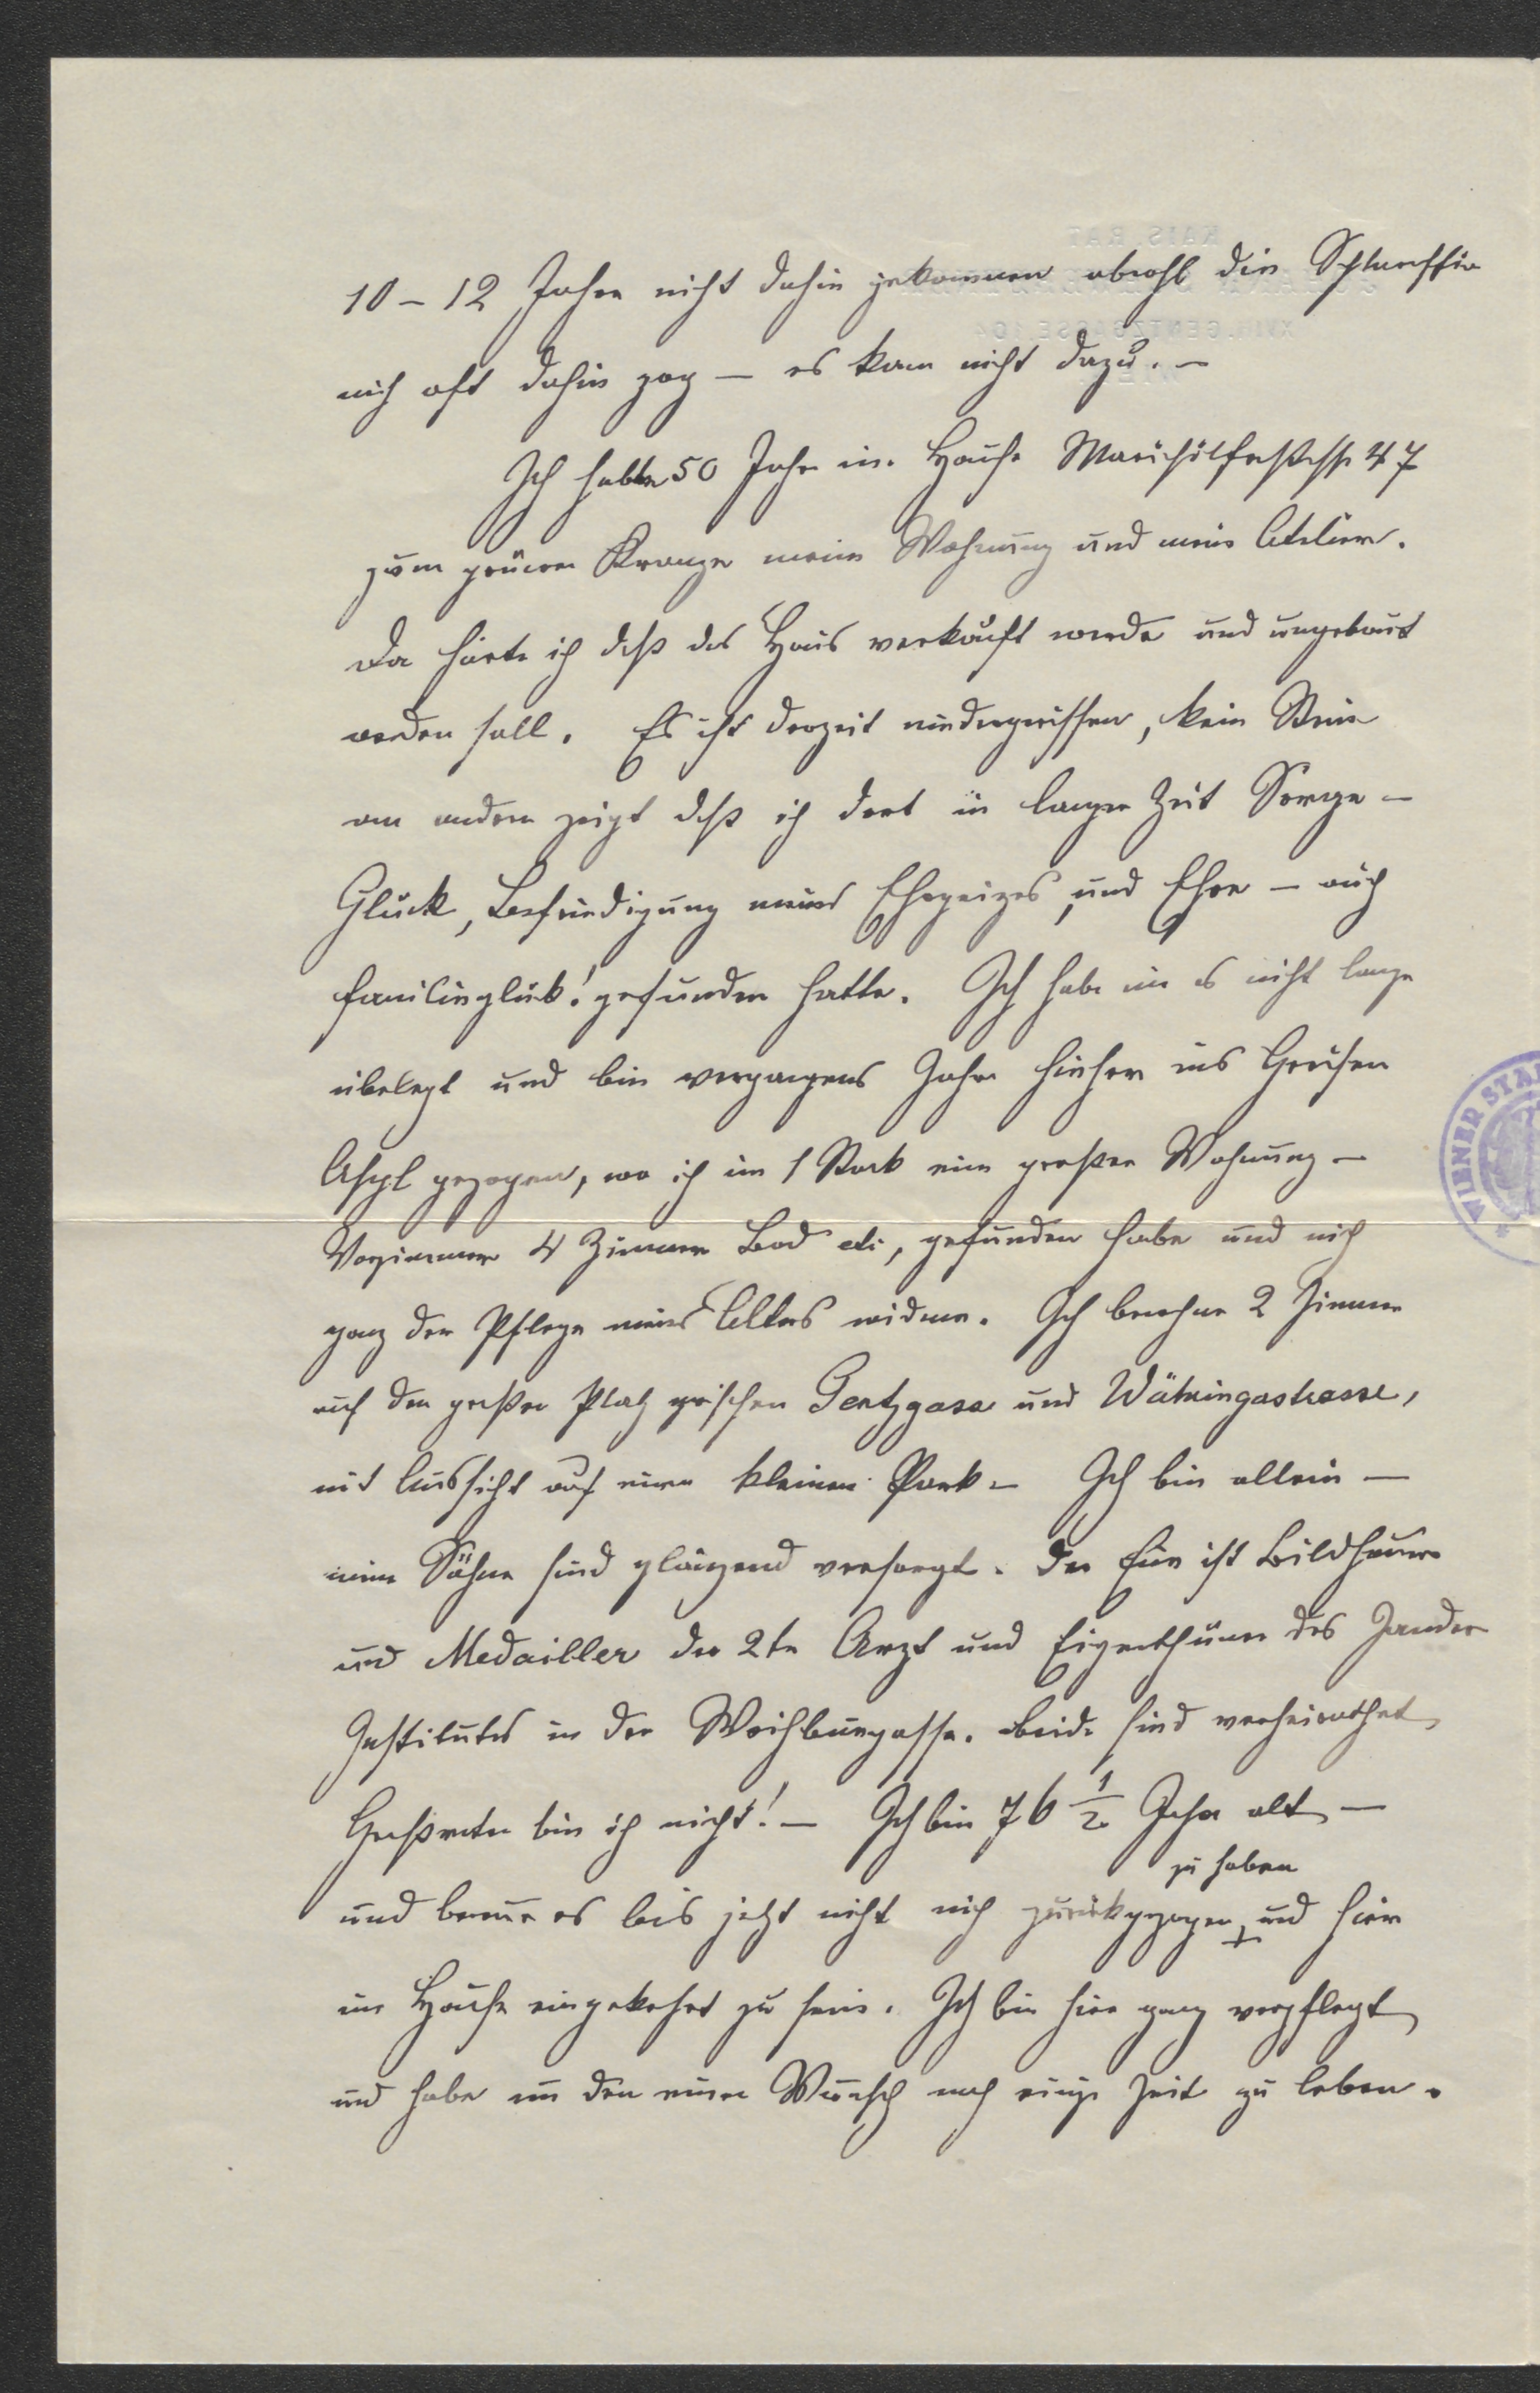 10 – 12 Jahre nicht dahin gekommen obwohl die Sehnsucht
mich oft dahin zog – es kam nicht dazu. –
Ich hatte 50 Jahre im Hause Mariahilferstrasse 47
zum grünen Kranze meine Wohnung und mein Atelier.
Da hörte ich daß das Haus verkauft werde und umgebaut
werden soll. Es ist derzeit niedergerissen, kein Stein
am andern zeigt daß ich dort in langer Zeit Sorge –
Glück, Befriedigung meines Ehrgeizes und Ehre – auch
Familienglück! gefunden hatte. Ich habe mir es nicht lange
überlegt und bin vergangenes Jahr hieher ins Greisen
Asyl gezogen, wo ich im 1 Stock eine große Wohnung –
Vorzimmer 4 Zimmer Bad etc, gefunden habe und mich
ganz der Pflege meines Alters widme. Ich bewohne 2 Zimmer
auf den großen Platz zwischen Gentzgasse und Währingerstrasse,
mit Aussicht auf einen kleinen Park – Ich bin allein –
meine Söhne sind glänzend versorgt. Der Eine ist Bildhauer
und Medailler der 2te Arzt und Eigenthümer des Zander
Institutes in der Weihburggasse. Beide sind verheirathet
Großvater bin ich nicht! – Ich bin 76 1/2 Jahre alt –
zu haben
und bereue es bis jetzt nicht mich zurückgezogen und hier
im Hause eingekehrt zu sein. Ich bin hier ganz verpflegt
und habe nur den einen Wunsch noch einige Zeit zu leben.
KAIS. RAT
XVIII. GENTZGASSE 104
WIENER STA